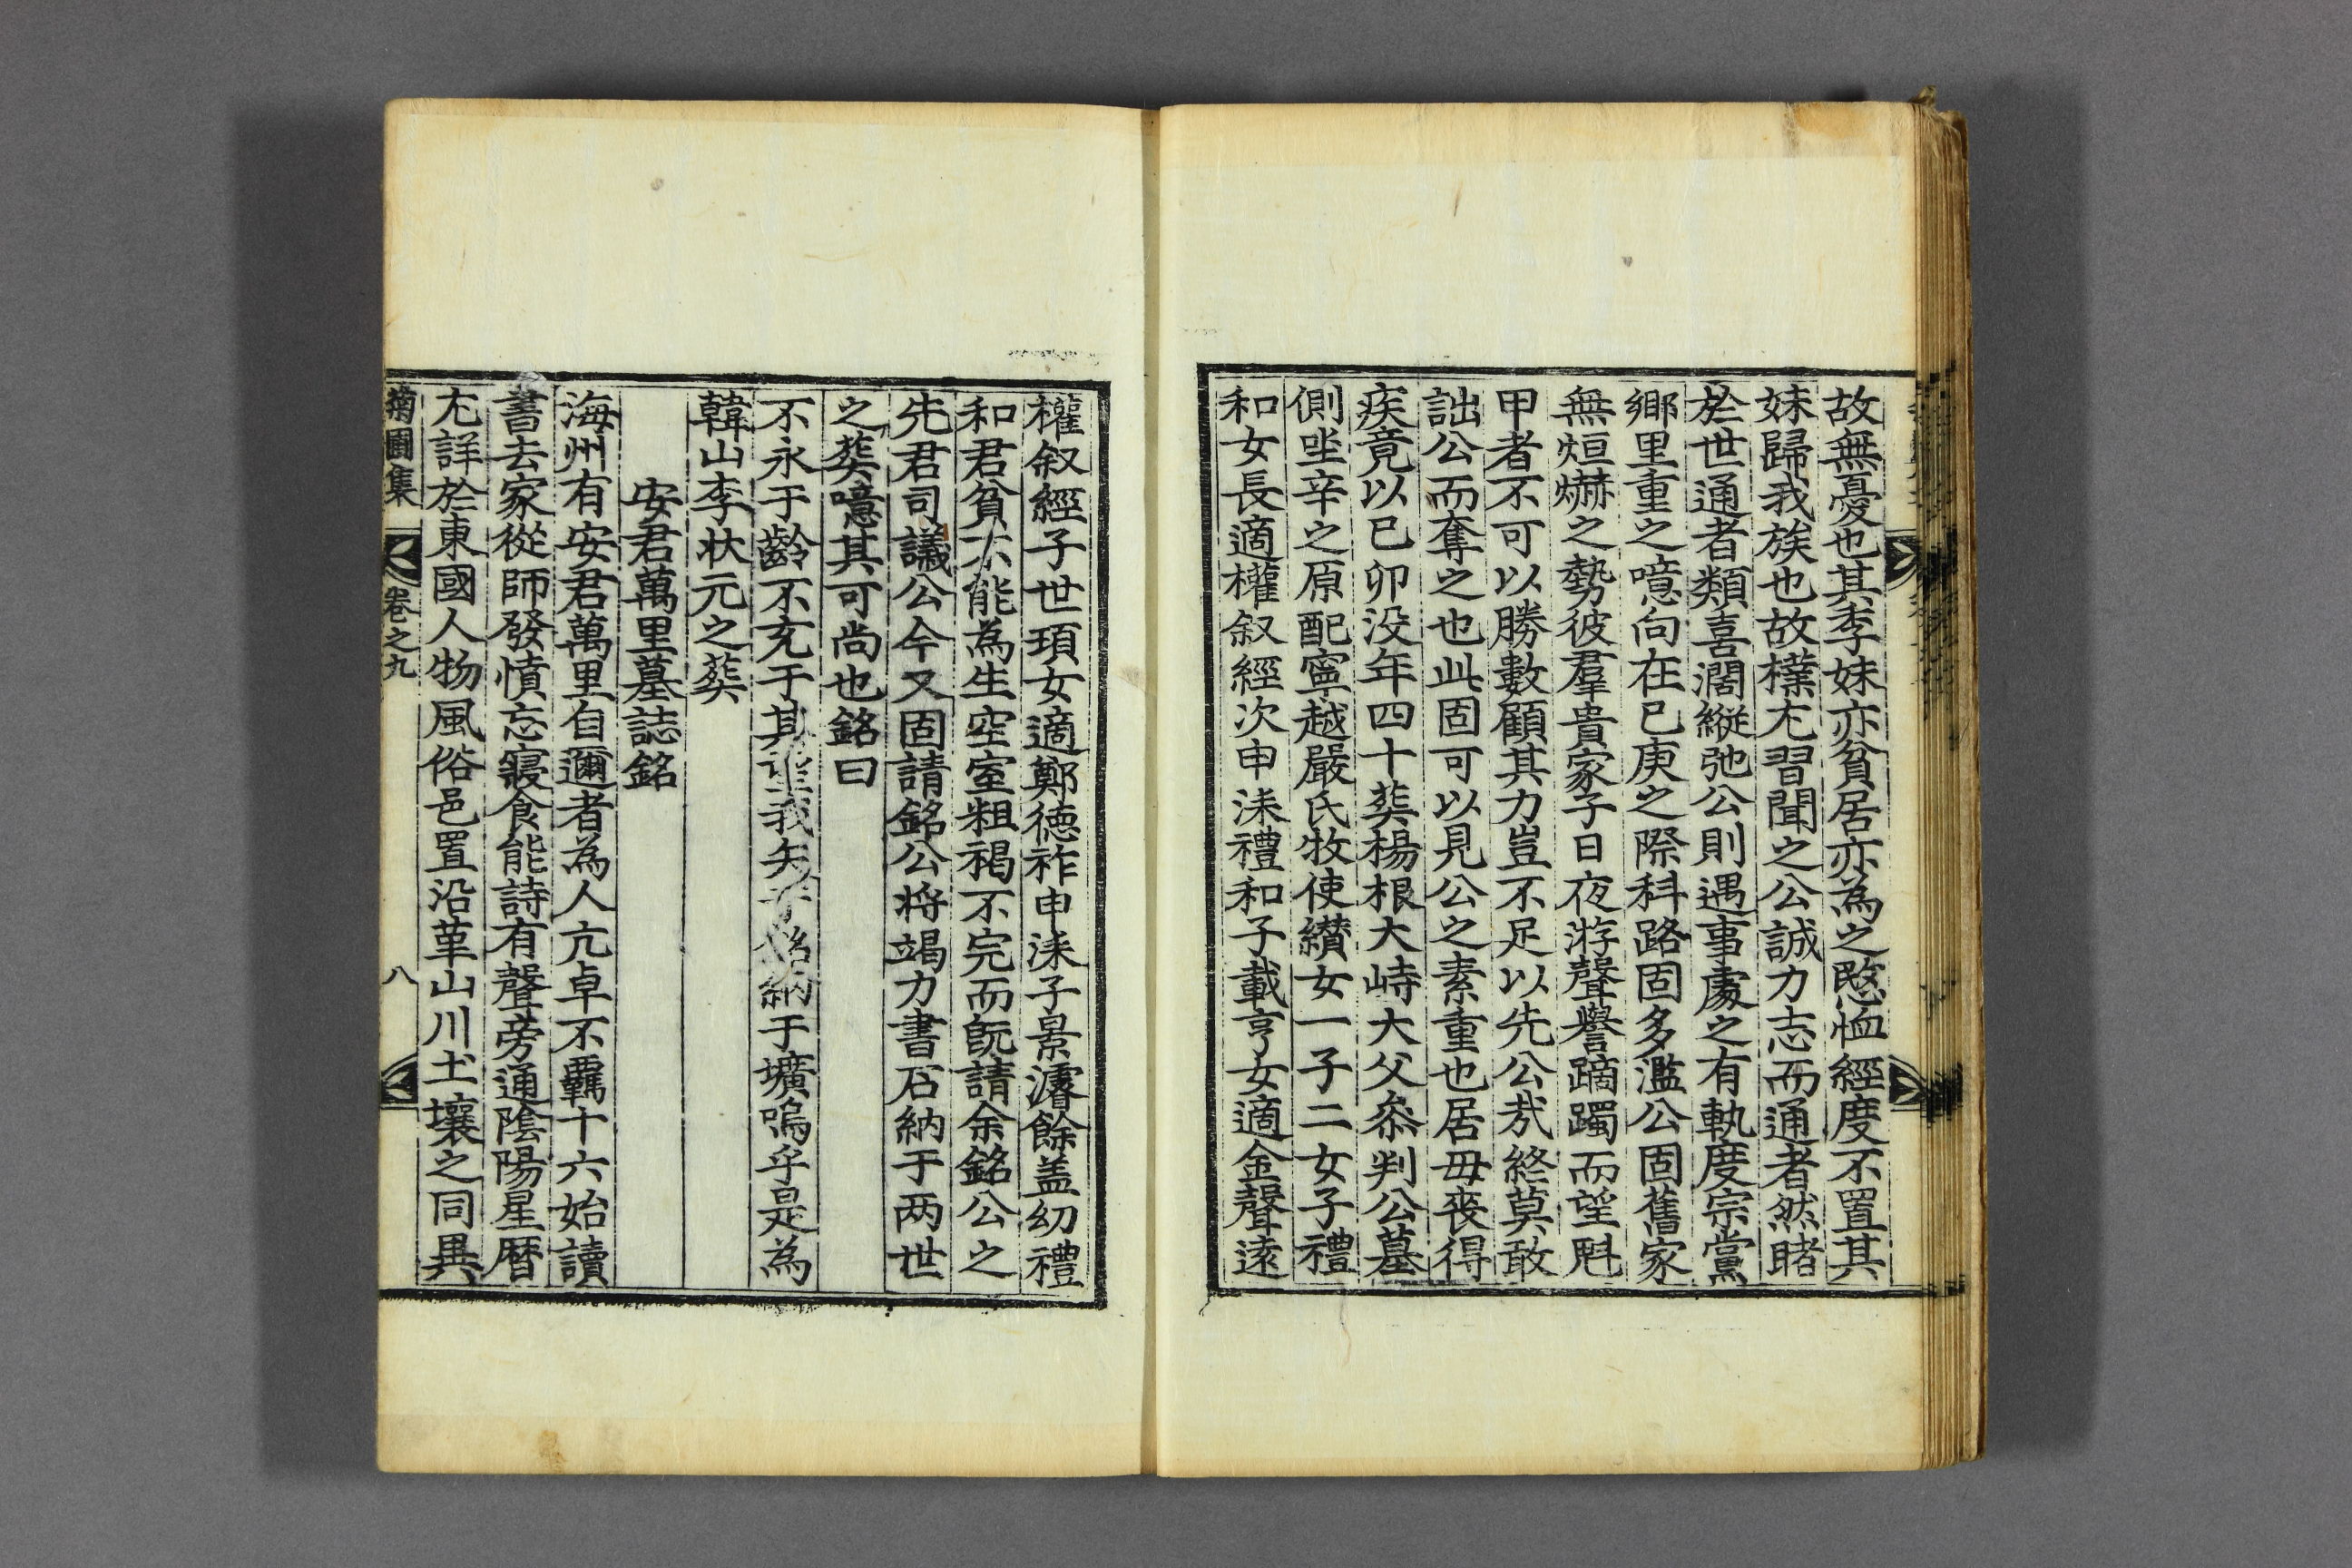 故無憂也其季妹亦貧居亦為之愍恤經度不置其
妹歸我族也故㨾尤習聞之公誠力志而通者然睹
於世通者類喜濶縱弛公則遇事處之有執度宗黨
鄉里重之噫向在己庚之際科路固多濫公固舊家
無烜爀之勢彼羣貴家子日夜游聲譽蹢躅而望魁
甲者不可以勝數顧其力豈不足以先公㢤終莫敢
詘公而奪之也此固可以見公之素重也居毋喪得
疾竟以己卯没年四十葬楊根大峙大父叅判公墓
側坐辛之原配寧越嚴氏牧使纉女一子二女子禮
和女長適權叙經次申洙禮和子載亨女適金聲遠
權叙經子世頊女適鄭德祚申洙子景濬餘盖幼禮
和君貧不能為生空室粗褐不完而旣請余銘公之
先君司議公今又固請銘公将竭力書石納于两世
之葬噫其可尚也銘曰
不永于齡不充于其 我矢 銘納于壙嗚乎是為
韓山李状元之葬
安君萬里墓誌銘
海州有安君萬里自邇者為人亢卓不羈十六始讀
書去家從師發憤忘寢食能詩有聲旁通陰陽星曆
尤詳於東國人物風俗邑置沿革山川土壤之同異
菊圃集 卷之九 八